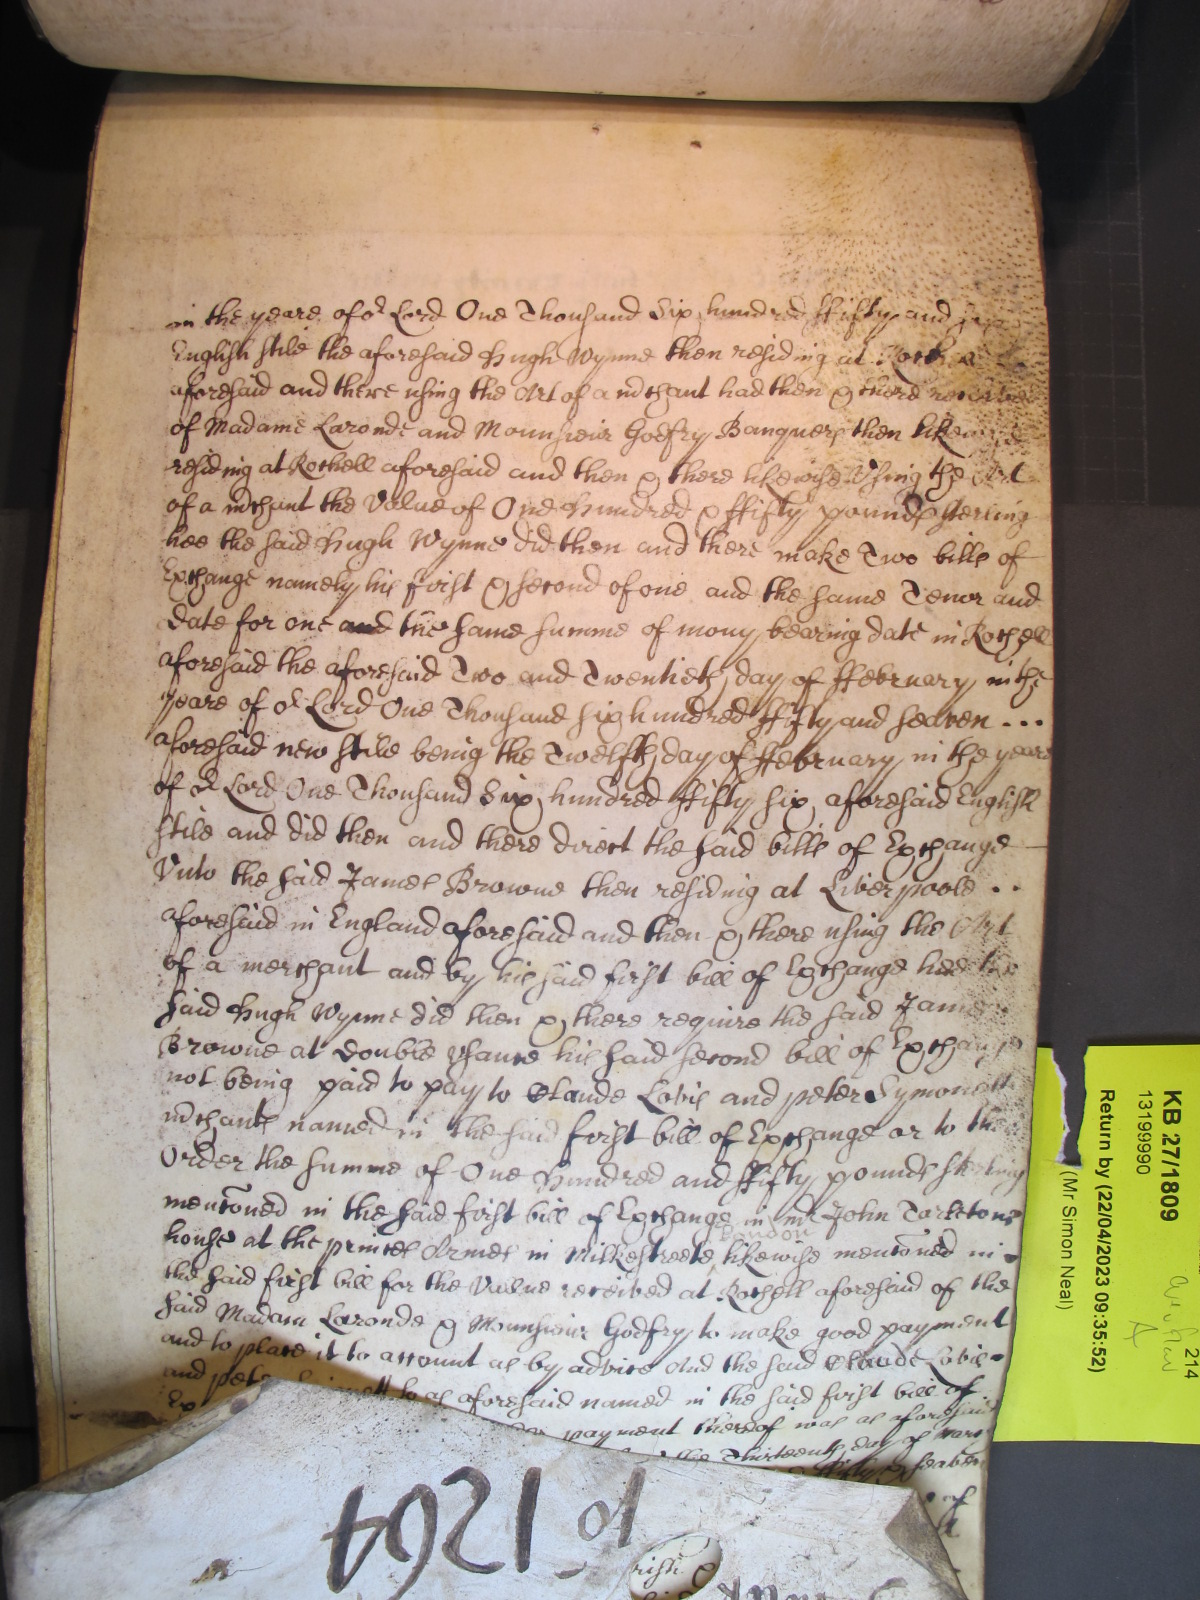 in the yeare of or Lord One Thousand Six hundred ffifty and six
English stile the aforesaid Hugh Wynne then residing at Rochell
aforesaid and there using the Art of a mrchant had then & there received
of Madame Laronde and Mounsieur Godfry Banquers then likewise
residing at Rochell aforesaid and then & there likewise Using the Art
of a mrchant the Value of One Hundred & ffifty pounds sterling
hee the said Hugh Wynne did then and there make Two bills of
Exchange namely his first & second of one and the same Tenor and
date for one and the same summe of mony bearing date in Rochell
aforesaid the aforesaid Two and Twentieth day of ffebruary in the
yeare of or Lord One Thousand six hundred ffifty and seaven ...
aforesaid new stile being the Twelfth day of ffebruary in the yeare
of or Lord One Thousand Six hundred ffifty six aforesaid English
stile and did then and there direct the said bills of Exchange
Unto the said James Browne then residing at Liverpoole ..
aforesaid in England aforesaid and then & there using the Art
of a merchant and by his said first bill of Exchange hee the
said Hugh Wynne did then & there require the said James
Browne at double usance his said second bill of Exchange
not being paid to pay to Claude Lovis and peter Symonett
mrchants named in the said first bill of Exchange or to the
Order the summe of One Hundred and ffifty pounds sterling
mentoned in the said first bill of Exchange in mr John Tarletons
London
house at the princes Armes in Milkestreete likewise mentoned in
the said first bill for the Value received at Rochell aforesaid of the
said Madam Laronde & Mounsieur Godfry to make good payment
and to place it to account as by advice And the said Claude Lovis
and pete as aforesaid named in the said first bill of
Ex payment thereof was as aforesaid
the Thirteenth day of
ffifty & seaven
of
p 1264
KB 27/809
13199990
Return by (22/04/2023 09:35:52)
(Mr Simon Neal)
214
A